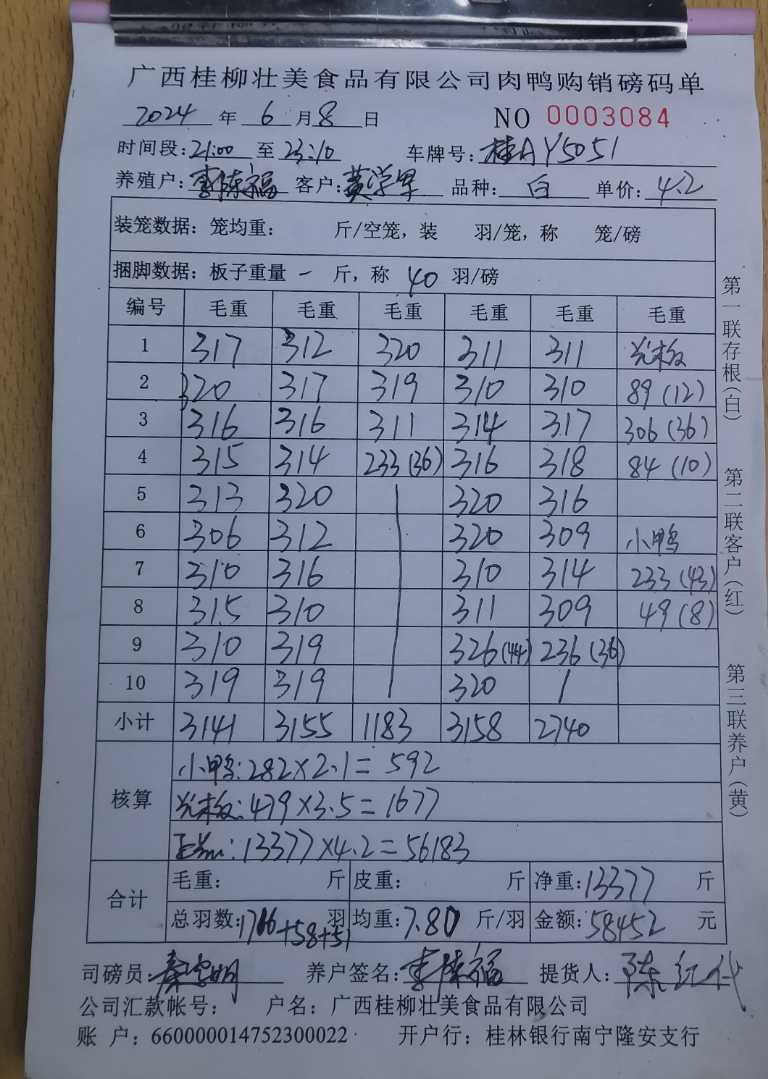 广西桂柳壮美食品有限公司肉鸭购销磅码单
2024 年 6 月 8 日 NO 0003084
时间段: 21:00 至 23:10 车牌号: 桂AY5051
养殖户: 李陈福 客户: 黄学军 品种: 白 单价: 4.2
装笼数据: 笼均重: 斤/空笼, 装 羽/笼, 称 笼/磅
捆脚数据: 板子重量 一 斤, 称 40 羽/磅
编号 毛重 毛重 毛重 毛重 毛重 毛重
1 317 312 320 311 311 光板
2 320 317 319 310 310 89 (12)
3 316 316 311 314 317 306 (36)
4 315 314 233 (36) 316 318 84 (10)
5 313 320 320 316
6 306 312 320 309 小鸭
7 310 316 310 314 233 (43)
8 315 310 311 309 49 (8)
9 310 319 326 (44) 236 (36)
10 319 319 320
小计 3141 3155 1183 3158 2740
核算
小鸭: 282×2.1= 592
光板: 479×3.5=1677
: 13377×4.2=56183
合计
毛重: 斤 皮重: 斤 净重: 13377 斤
总羽数: 1716+58+51 羽 均重: 7.80 斤/羽 金额: 58452 元
司磅员: 养户签名: 李陈福 提货人: 陈红代
公司汇款帐号: 户名: 广西桂柳壮美食品有限公司
账 户: 660000014752300022 开户行: 桂林银行南宁隆安支行
第一联存根(白)
第二联客户(红)
第三联养户(黄)